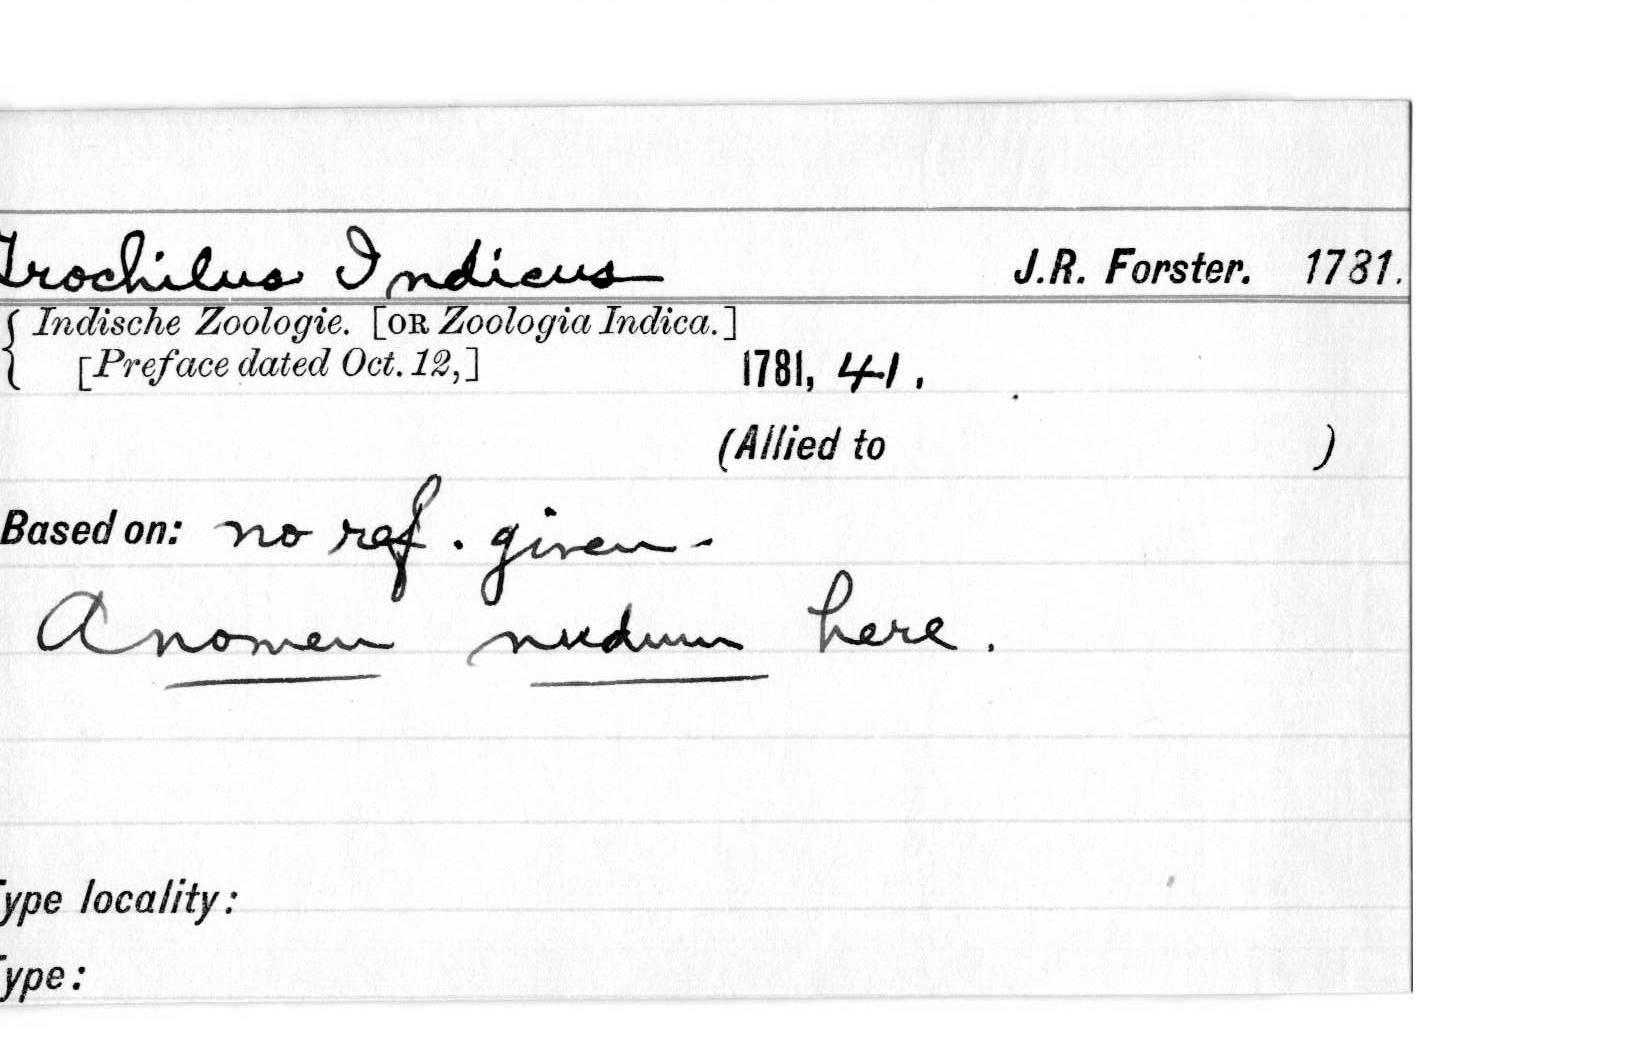 Trochilus Indicus J.R. Forster. 1781.
Indische Zoologie. [OR Zoologia Indica.]
[Preface dated Oct. 12,] 1781, 41.
(Allied to )
Based on: no ref. given -
A nomen nudum here.
Type locality:
Type: